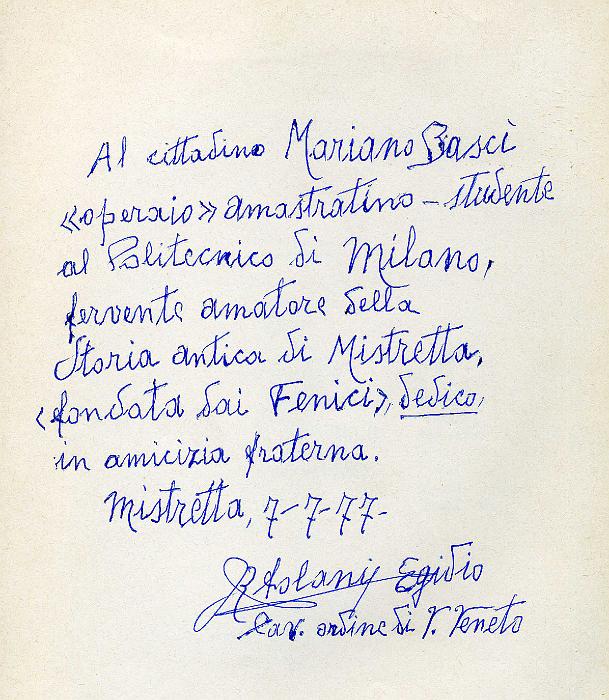 Al cittadino Mariano Bascì
«operaio» amastratino - studente
al Politecnico di Milano,
fervente amatore della
Storia antica di Mistretta,
«fondata dai Fenici», dedico,
in amicizia fraterna.
Mistretta, 7-7-77-
Egidio
Cav. ordine di V. Veneto